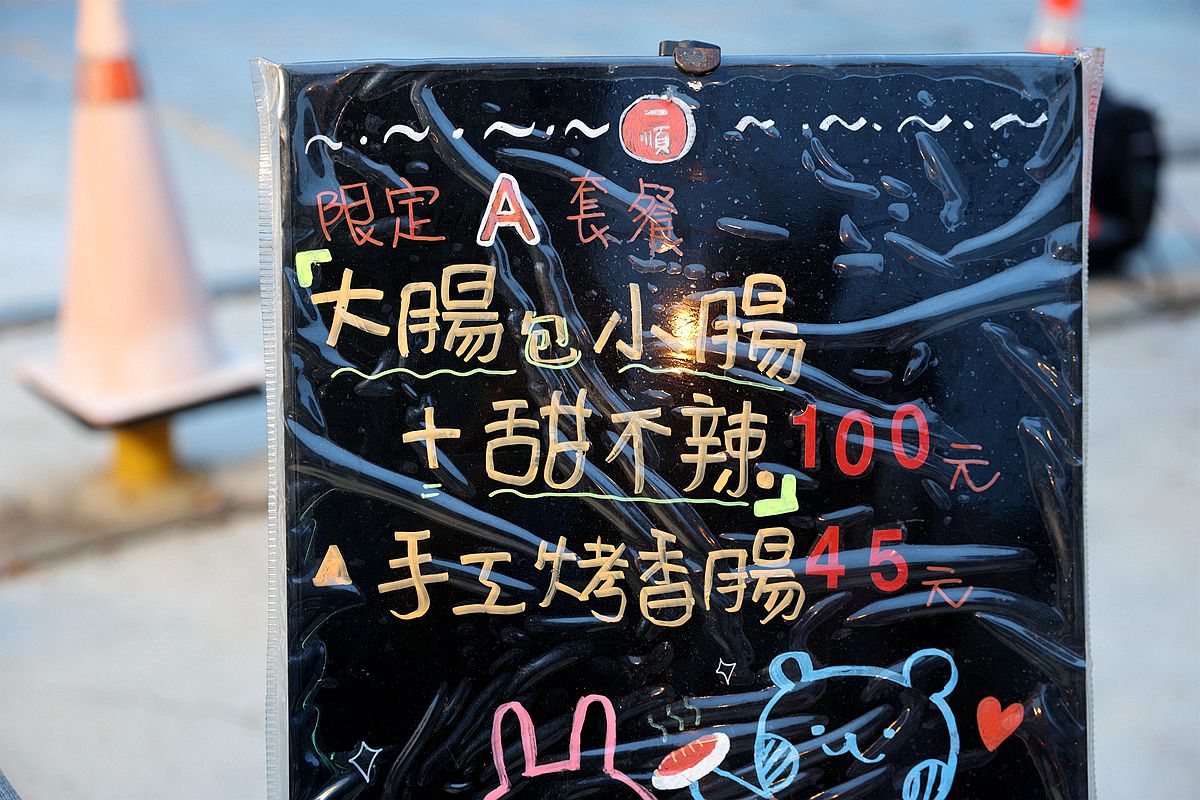 一順
限定 A 套餐
大腸包小腸
+甜不辣 100元
手工烤香腸 45元